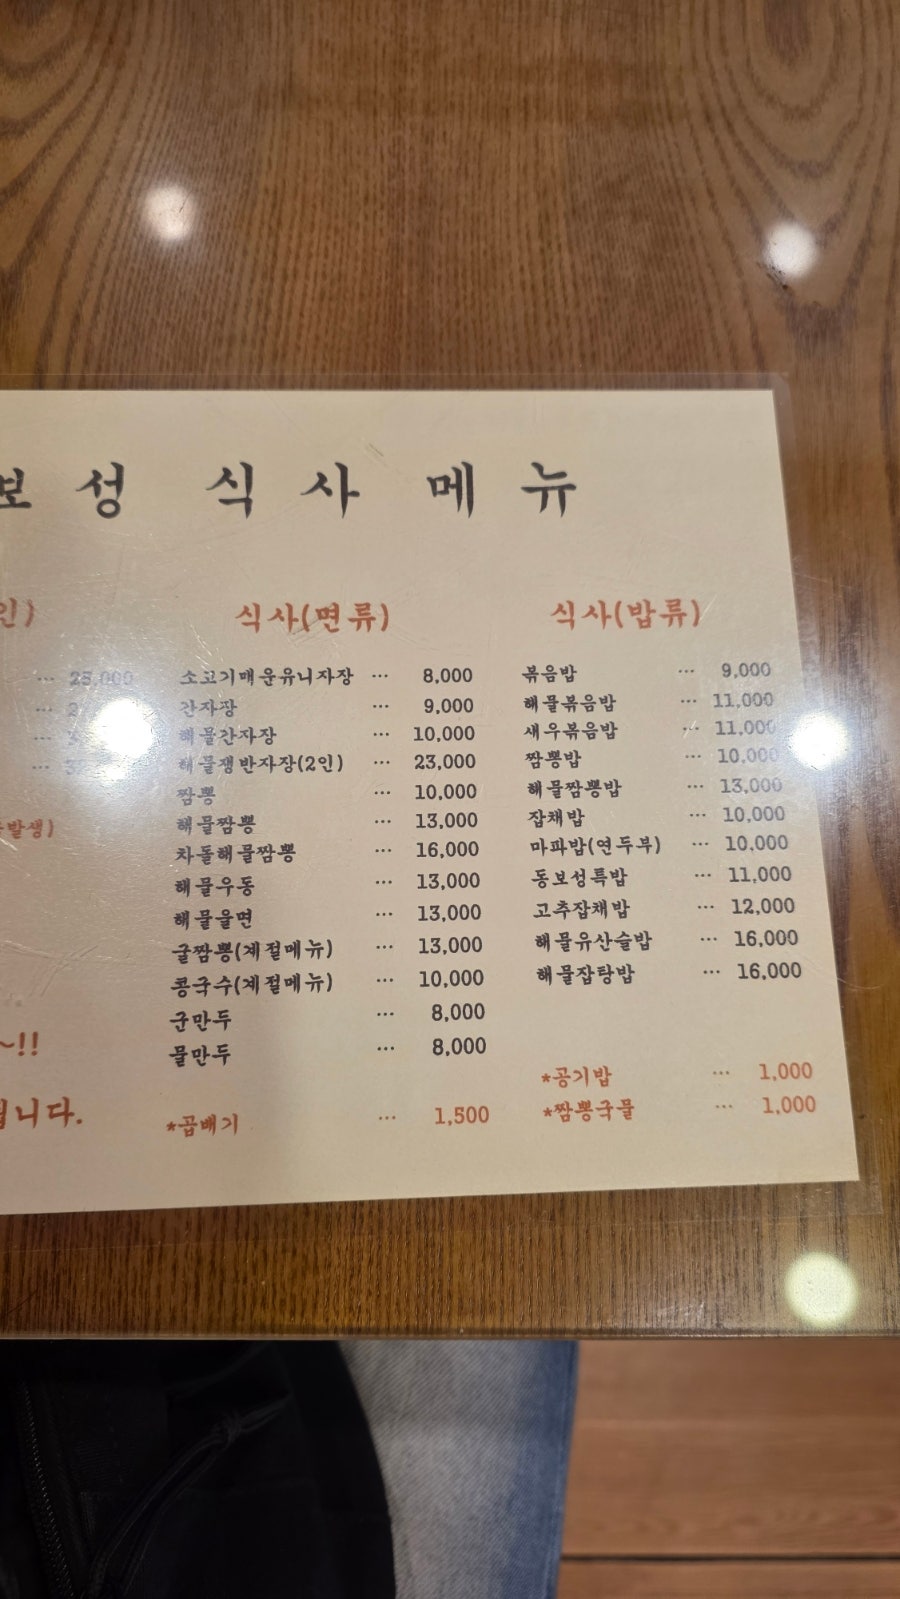 보성 식사 메뉴
인)
식사(면류)
식사(밥류)
... 23,000
소고기매운유니자장 ... 8,000
간자장 ... 9,000
해물간자장 ... 10,000
해물쟁반자장(2인) ... 23,000
짬뽕 ... 10,000
해물짬뽕 ... 13,000
차돌해물짬뽕 ... 16,000
해물우동 ... 13,000
해물울면 ... 13,000
굴짬뽕(계절메뉴) ... 13,000
콩국수(계절메뉴) ... 10,000
군만두 ... 8,000
물만두 ... 8,000
*곱배기 ... 1,500
볶음밥 ... 9,000
해물볶음밥 ... 11,000
새우볶음밥 ... 11,000
짬뽕밥 ... 10,000
해물짬뽕밥 ... 13,000
잡채밥 ... 10,000
마파밥(연두부) ... 10,000
동보성특밥 ... 11,000
고추잡채밥 ... 12,000
해물유산슬밥 ... 16,000
해물잡탕밥 ... 16,000
*공기밥 ... 1,000
*짬뽕국물 ... 1,000
발생)
~!!
니다.